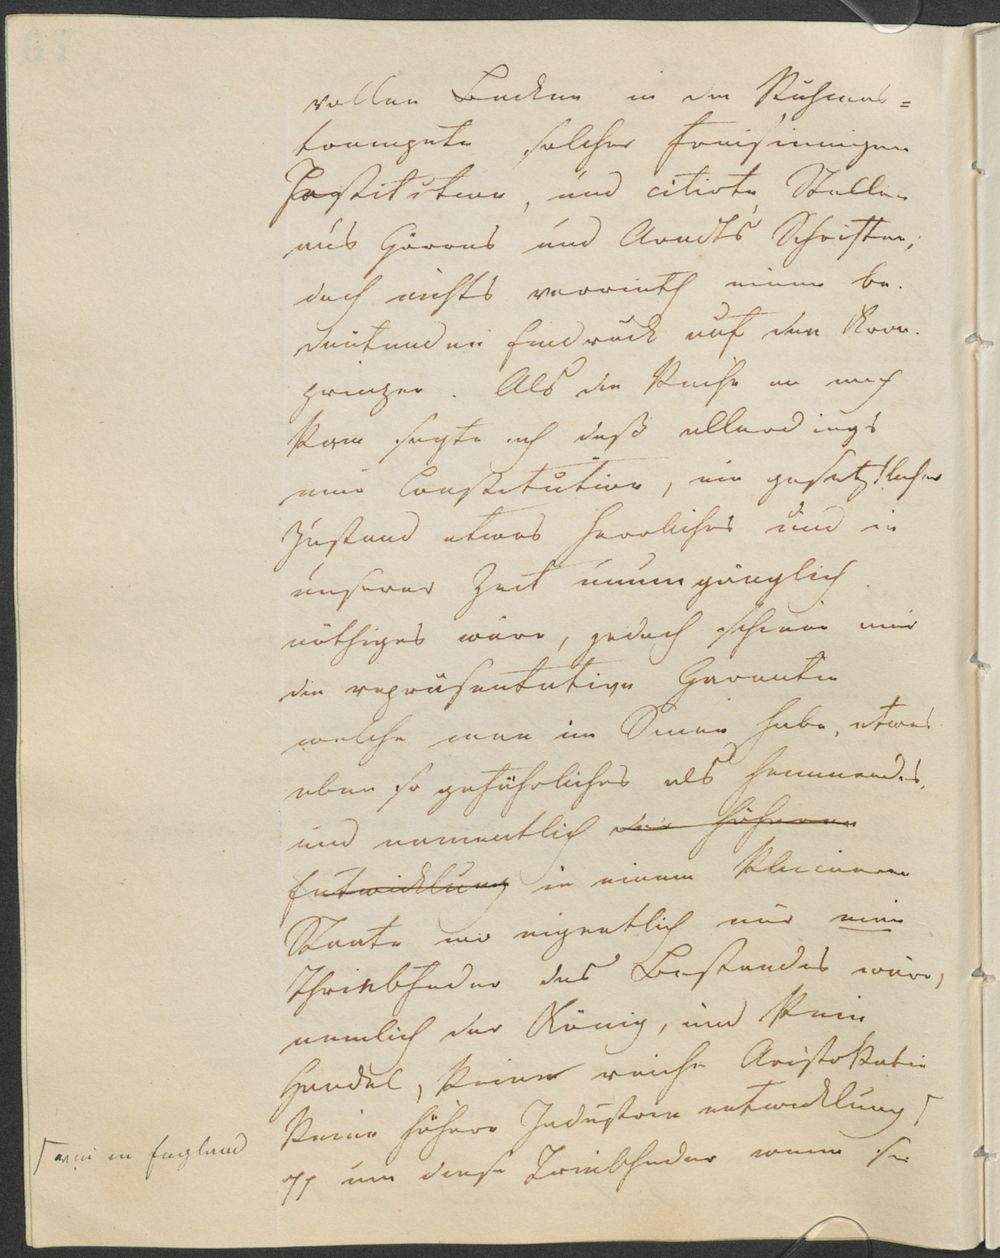 vollen Backen in die Ruhmes=
trompete solcher freisinnigen
Institution, und citirte Stellen
aus Görres und Arndts Schriften;
doch nichts verrieth einen be-
deutenden Eindruck auf den Kron-
prinzen. Als die Reihe an mich
kam sagte ich daß allerdings
eine Constitution, ein gesetzlicher
Zustand etwas herrliches und in
unserer Zeit unumgänglich
nöthiges wäre, jedoch schiene mir
die repräsentative Garantie
welche man im Sinne habe, etwas
eben so gefährliches als hemmendes,
und namentlich die höhere
Entwicklung in einem kleineren
Staate wo eigentlich nur eine
Thriebfeder des Bestandes wäre,
nemlich der König, und kein
Handel, keine reiche Aristokratie
keine höhere Industrie entwicklung
wie in England
um diese Triebfeder wenn sie